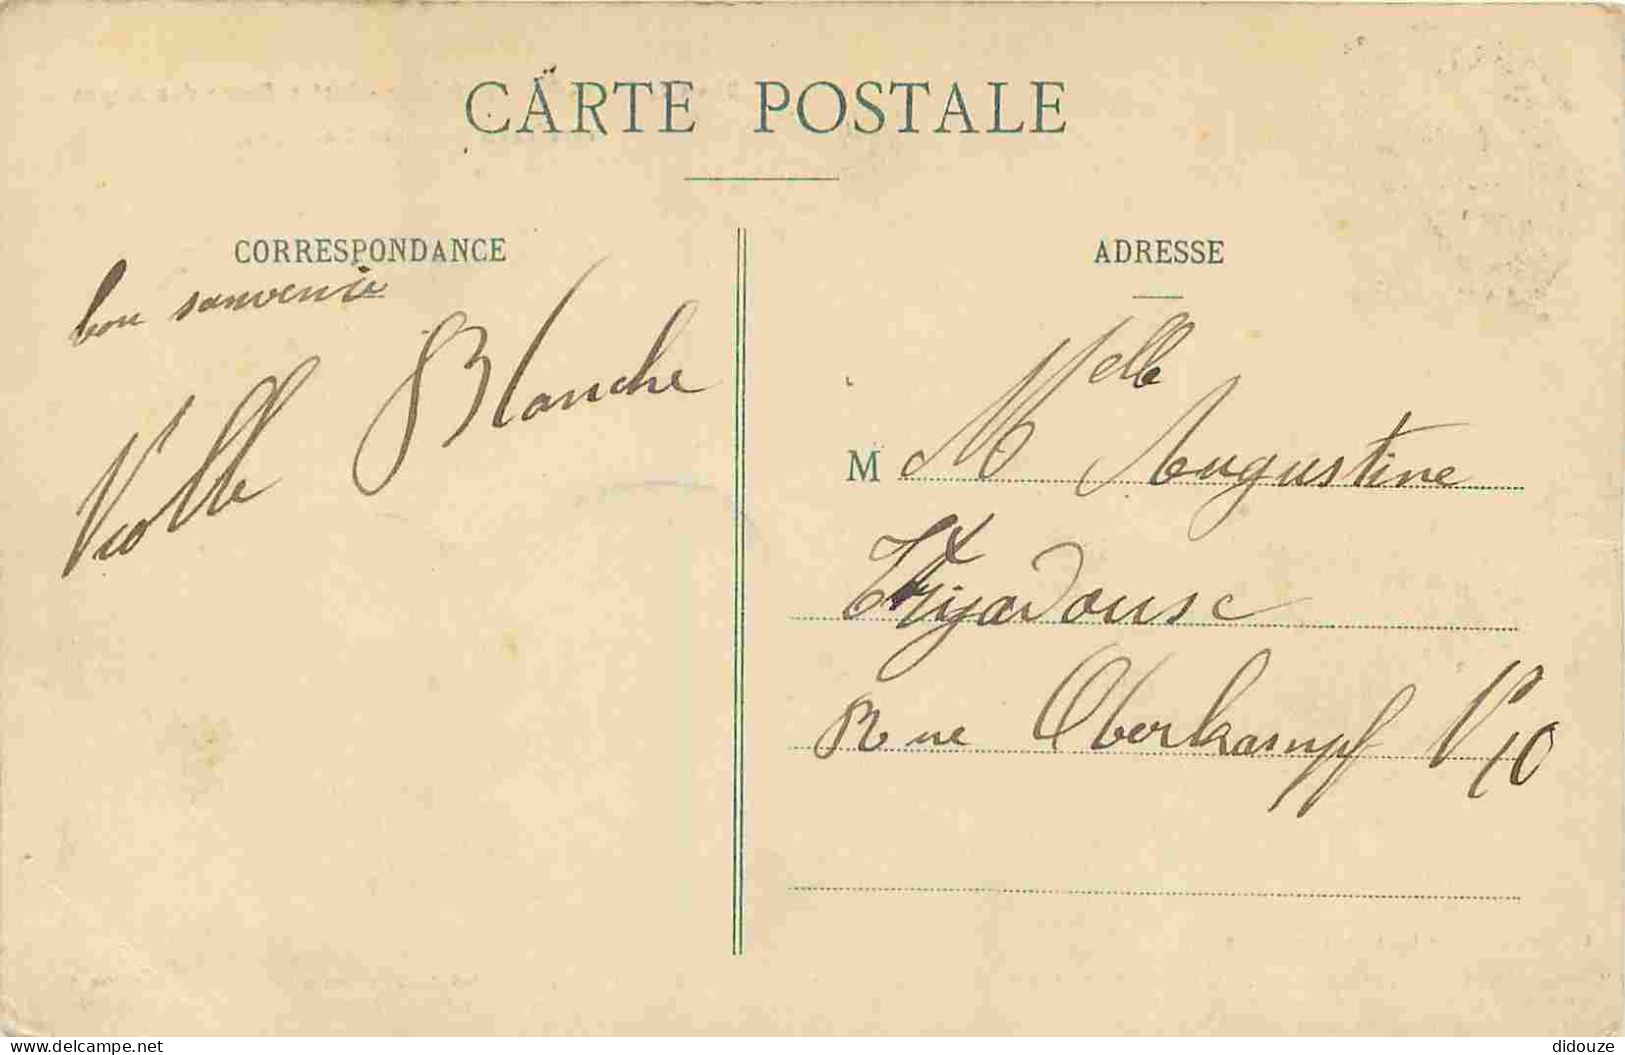 CARTE POSTALE
CORRESPONDANCE
bon souvenir
Violle Blanche
ADRESSE
M Melle Augustine
Rue Oberkampf No 10
delcampe.net
didouze